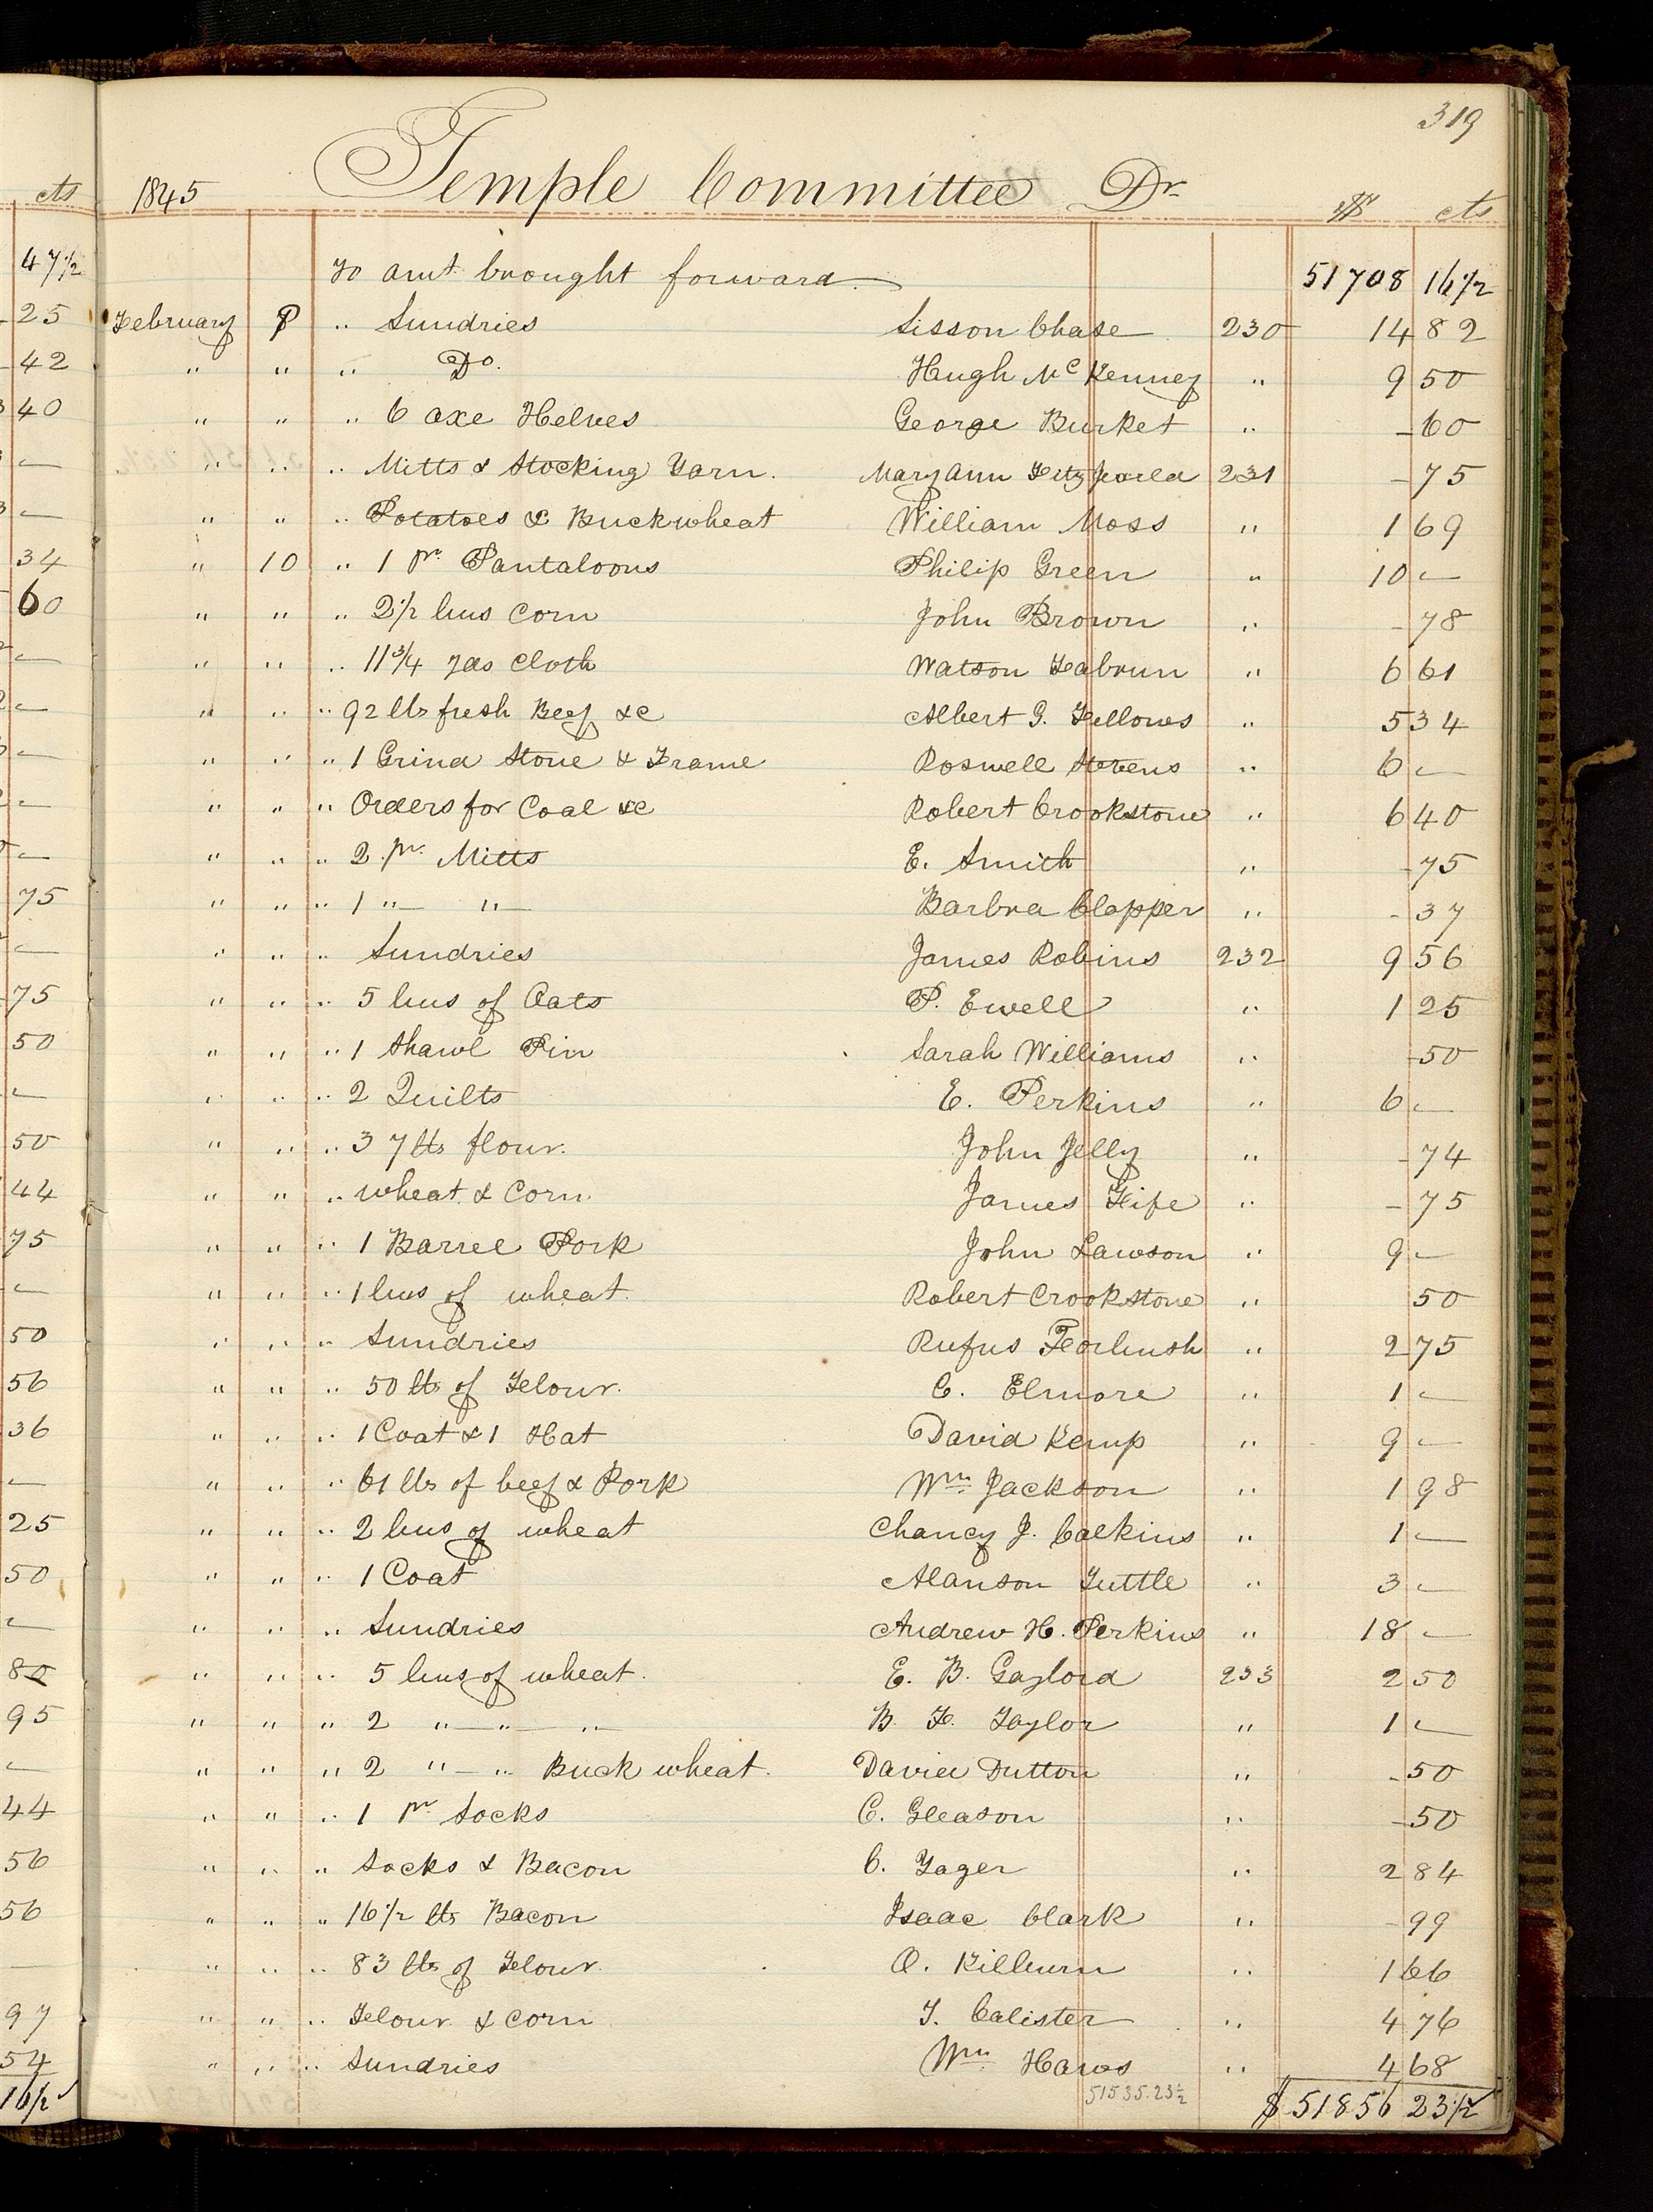 319
1845 Temple Committee Dr $ cts
To amt brought forward 51708 16 1/2
February 8 " Sundries Sisson Chase 230 14 82
" " " Do. Hugh McKenney " 9 50
" " " 6 axe Helves George Burket " - 60
" " " Mitts & Stocking Yarn. Mary Ann Fitz Jearld 231 - 75
" " " Potatoes & Buckwheat William Moss " 1 69
" 10 " 1 pr Pantaloons Philip Green " 10 -
" " " 2 1/2 bus Corn John Brown " - 78
" " " 11 3/4 yds Cloth Watson " 6 61
" " " 92 lbs fresh Beef &c Albert G. Fellows " 5 34
" " " 1 Grind Stone & Frame Roswell Stevens " 6 -
" " " Orders for Coal &c Robert Crookstone " 6 40
" " " 2 pr. Mitts E. Smith " - 75
" " " 1 " " Barbra Clapper " - 37
" " " Sundries James Robins 232 9 56
" " " 5 bus of Oats P. Ewell " 1 25
" " " 1 Shawl Pin Sarah Williams " - 50
" " " 2 Quilts E. Perkins " 6 -
" " " 37 lbs flour. John Jelly " - 74
" " " wheat & Corn. James Fife " - 75
" " " 1 Barrel Pork John Lawson " 9 -
" " " 1 bus of wheat. Robert Crookstone " 50
" " " Sundries Rufus Forbush " 2 75
" " " 50 lbs of Flour. C. Elmore " 1 -
" " " 1 Coat & 1 Hat David Kemp " 9 -
" " " 61 lbs of beef & Pork Wm Jackson " 1 98
" " " 2 bus of wheat Chancy J. Calkins " 1 -
" " " 1 Coat Alanson Tuttle " 3 -
" " " Sundries Andrew H. Perkins " 18 -
" " " 5 bus of wheat. E. B. Gaylord 233 2 50
" " " 2 " " " B. F. Taylor " 1 -
" " " 2 " " Buck wheat. David Dutton " - 50
" " " 1 pr Socks C. Gleason " - 50
" " " Socks & Bacon C. Yager " 2 84
" " " 16 1/2 lbs Bacon Isaac Clark " - 99
" " " 83 lbs of Flour. O. Kilburn " 1 66
" " " Flour & Corn T. Calister " 4 76
" " " Sundries Wm Haws " 4 68
51535.23 1/2 $ 51856 23 1/2
cts
47 1/2
25
42
40
-
-
34
60
-
-
-
-
-
75
-
75
50
-
50
44
75
-
50
56
36
-
25
50
-
80
95
-
44
56
56
-
97
54
16 1/2